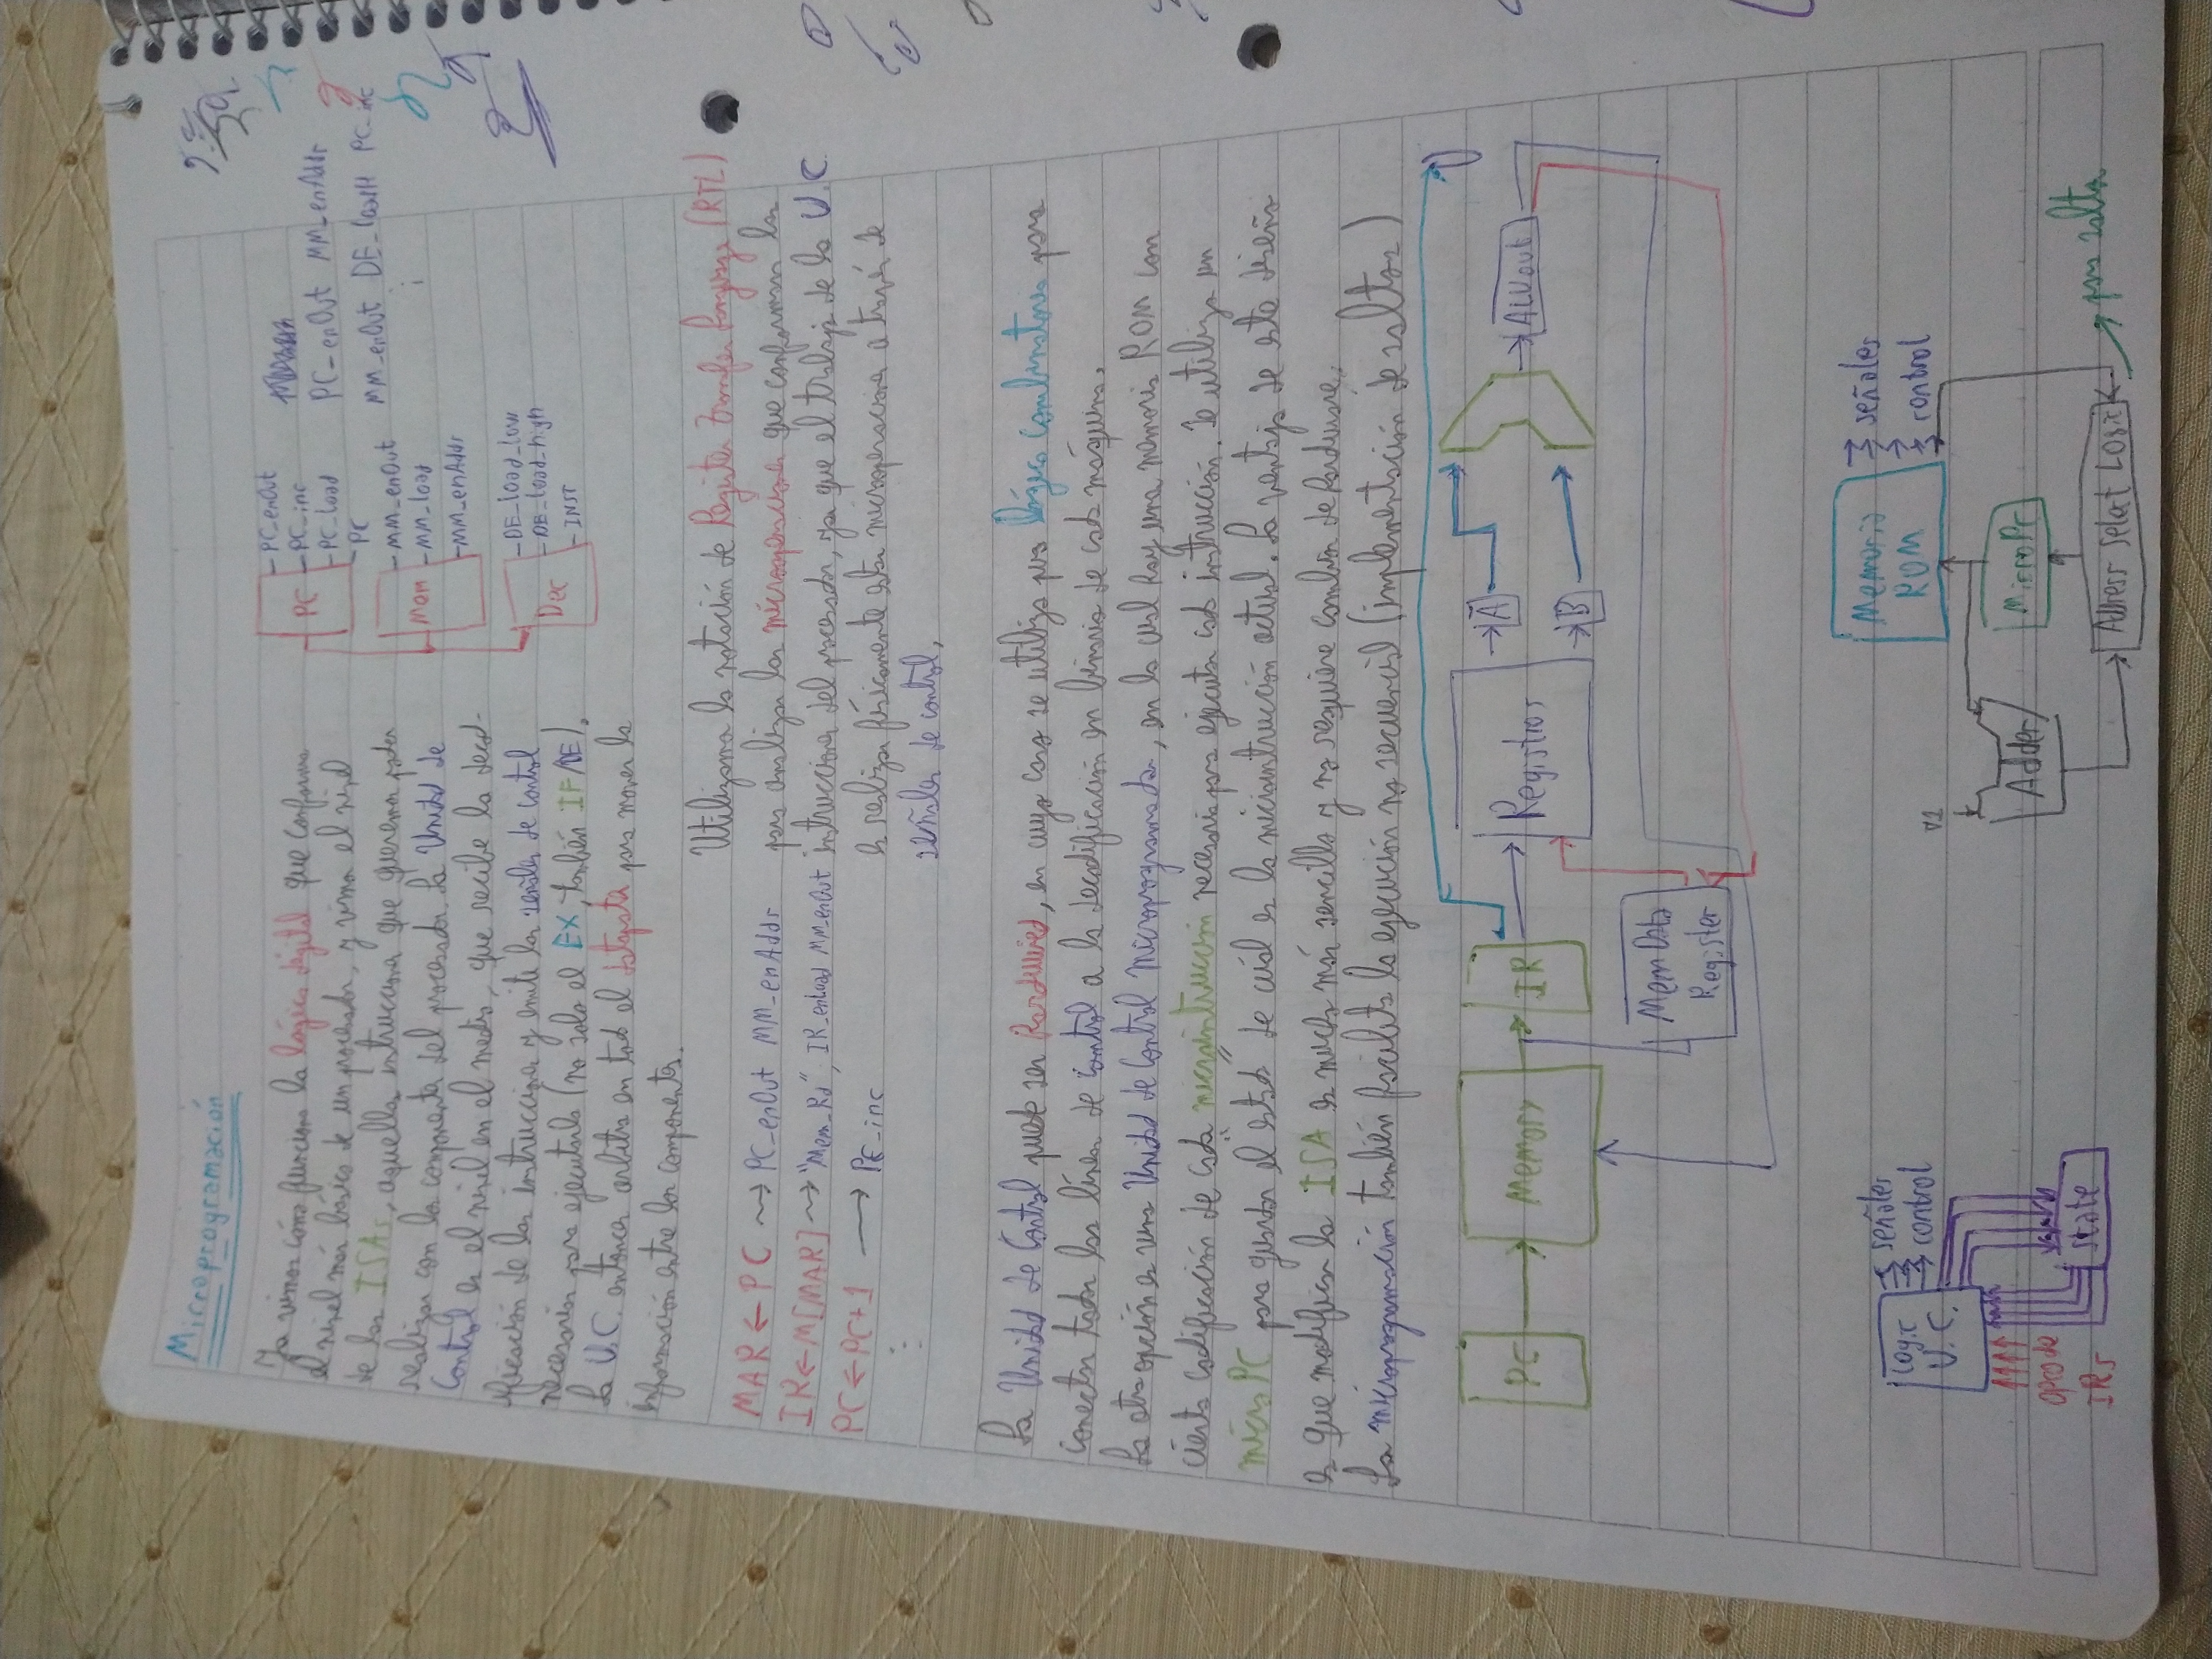 Microprogramación
Ya vimos cómo funciona la lógica digital que conforma
el nivel más básico de un procesador, y vimos el nivel
de las ISAs, aquellas intrucciones que queremos poder
realizar con los componentes del procesador. La Unidad de
Control es el nivel en el medio, que recibe la decod-
ificación de las instrucciones y emite las señales de control
necesarias para ejecutarla (no solo el EX, también IF/DE).
La U.C. entonces arbitra en todo el datapath para mover la
información entre los componentes.
PC
PC_enOut
PC_inc
PC_load
PC
Mem
MM_enOut
MM_load
MM_enAddr
Dec
DE_load_low
DE_load_high
INST
PC_enOut MM_enAddr
MM_enOut DE_loadH PC_inc
MAR ← PC ⟿ PC_enOut MM_enAddr
IR ← M[MAR] ⟿ "Mem_Rd", IR_enLoad MM_enOut
PC ← PC+1 → PC_inc
Utilizamos la notación de Register Transfer Language (RTL)
para analizar las microoperaciones que conforman las
intrucciones del procesador, ya que el trabajo de la U.C.
es realizar físicamente estas microoperaciones a través de
señales de control.
La Unidad de Control puede ser Hardwired, en cuyo caso se utiliza pura lógica combinatoria para
conectar todas las líneas de control a la decodificación en binario de cada máquina.
La otra opción es una Unidad de Control Microprogramada, en la cual hay una memoria ROM con
cierta codificación de cada microintrucción necesaria para ejecutar cada instrucción. Se utiliza un
micro PC para guardar el "estado" de cuál es la microintrucción actual. La ventaja de este diseño
es que modificar la ISA es mucho más sencillo y no requiere cambios de hardware.
La microprogramación también facilita la ejecución no secuencial (implementación de saltos)
PC
Memory
IR
Registros
A
B
ALUout
Mem Data
Register
Logic
U.C.
señales
control
opcode
IRs
State
Memoria
ROM
señales
control
Adder
MicroPC
Address Select Logic
para saltos